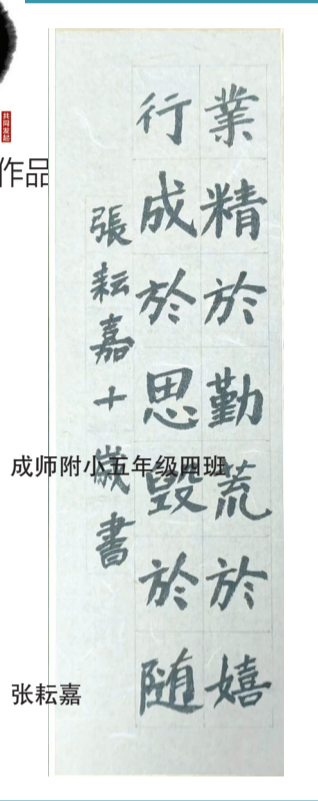 共同发起
作品
業精於勤荒於嬉
行成於思毀於随
張耘嘉十歲書
成师附小五年级四班
张耘嘉